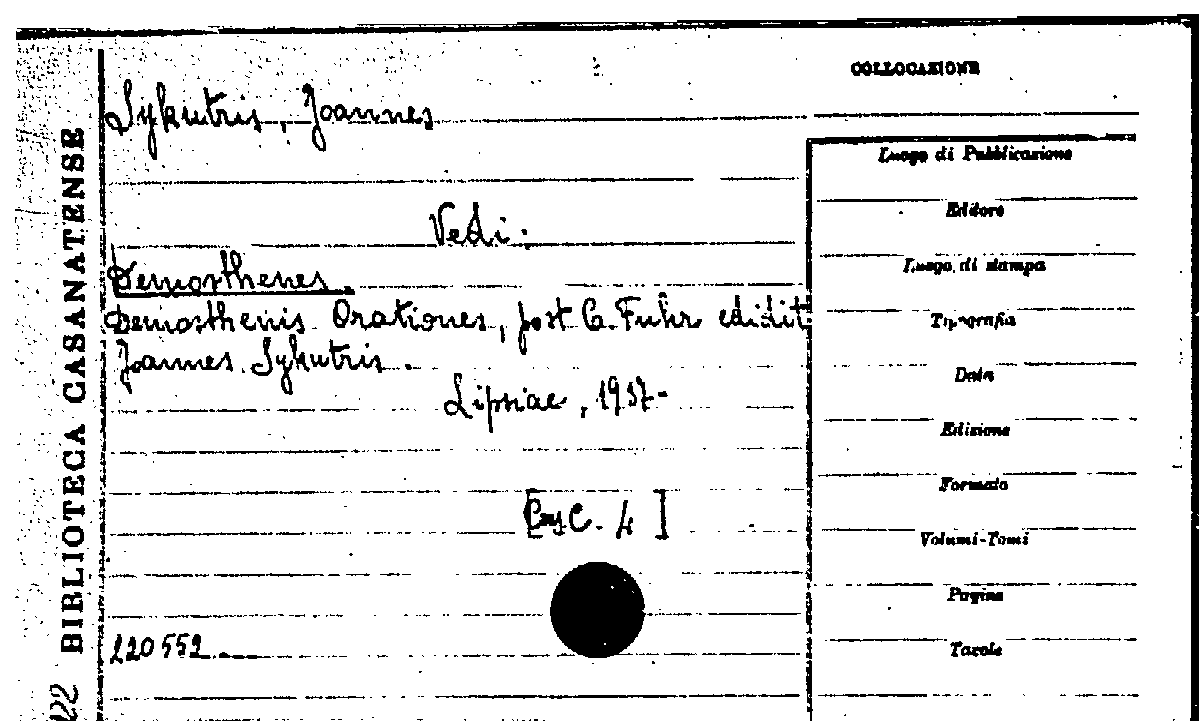 COLLOCAZIONE
Sykutris, Joannes
Luogo di Pubblicazione
Editore
Vedi:
Luogo di stampa
Demosthenes.
Demosthenis Orationes, post C. Fuhr edidit
Tipografia
Joannes Sykutris.
Data
Lipsiae, 1937-
Edizione
Formato
C. 4 ]
Volumi-Tomi
Pagine
220552
Tavole
BIBLIOTECA CASANATENSE
22